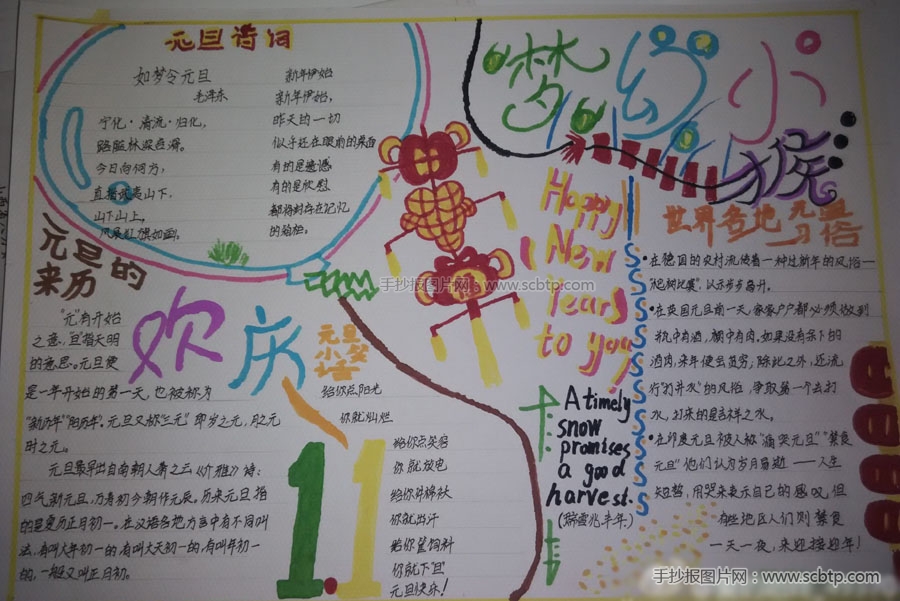 元旦诗词
如梦令元旦
毛泽东
宁化·清流·归化,
路隘林深苔滑。
今日向何方,
直指武夷山下.
山下山上,
风展红旗如画.
新年伊始
新年伊始,
昨天的一切
似乎还在眼前的桌面
有的是遗憾
有的是欣慰
都将封存在记忆
的箱柜。
梦幻小
猴
元旦的
来历
"元"有开始
之意,"旦"指天明
的意思。元旦便
是一年开始的第一天,也被称为
"新历年""阳历年".元旦又称"三元"即岁之元,月之元
时之元。
元旦最早出自南朝人萧子云《介雅》诗:
四气新元旦,万寿初今朝作元辰.历来元旦指
的是夏历正月初一。在汉语各地方言中有不同叫
法,有叫大年初一的,有叫大天初一的,有叫年初一
的,一般又叫正月初。
欢庆
元旦
小笑
话
给你点阳光
你就灿烂
给你点笑容
你就放电
给你讲棉袄
你就出汗
给你筐饲料
你就下旦
元旦快乐!
1.1
Happy
New
Years
to you
A timely
snow
promises
a good
harvest.
(瑞雪兆丰年)
世界各地元旦
习俗
在德国的农村流传着一种过新年的风俗一
"爬树比赛",以示步步高升。
在英国元旦前一天,家家户户都必须做到
瓶中有酒,橱中有肉.如果没有余下的
酒肉,来年便会贫穷,除此之外,还流
行"打井水"的风俗,争取第一个去打
水,打来的是吉祥之水。
在印度元旦被人称"痛哭元旦""禁食
元旦"他们认为岁月易逝——人生
短暂,用哭来表示自己的感叹,但
有些地区人们则禁食
一天一夜,来迎接迎年!
手抄报图片网:www.scbtp.com
手抄报图片网:www.scbtp.com